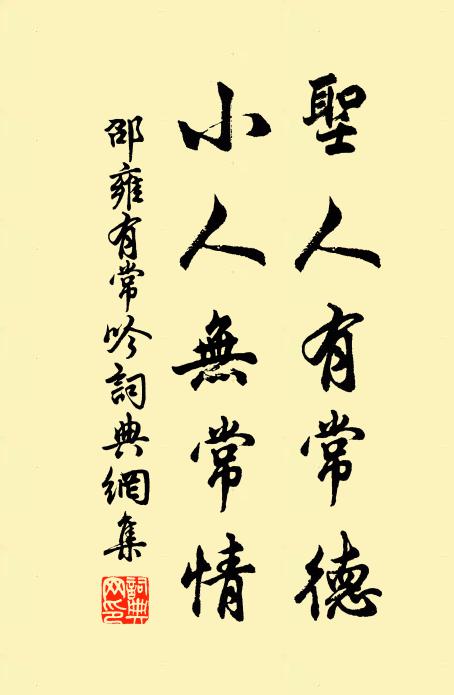 聖人有常德
小人無常情
邵雍有常吟詞典網集
詞典网印